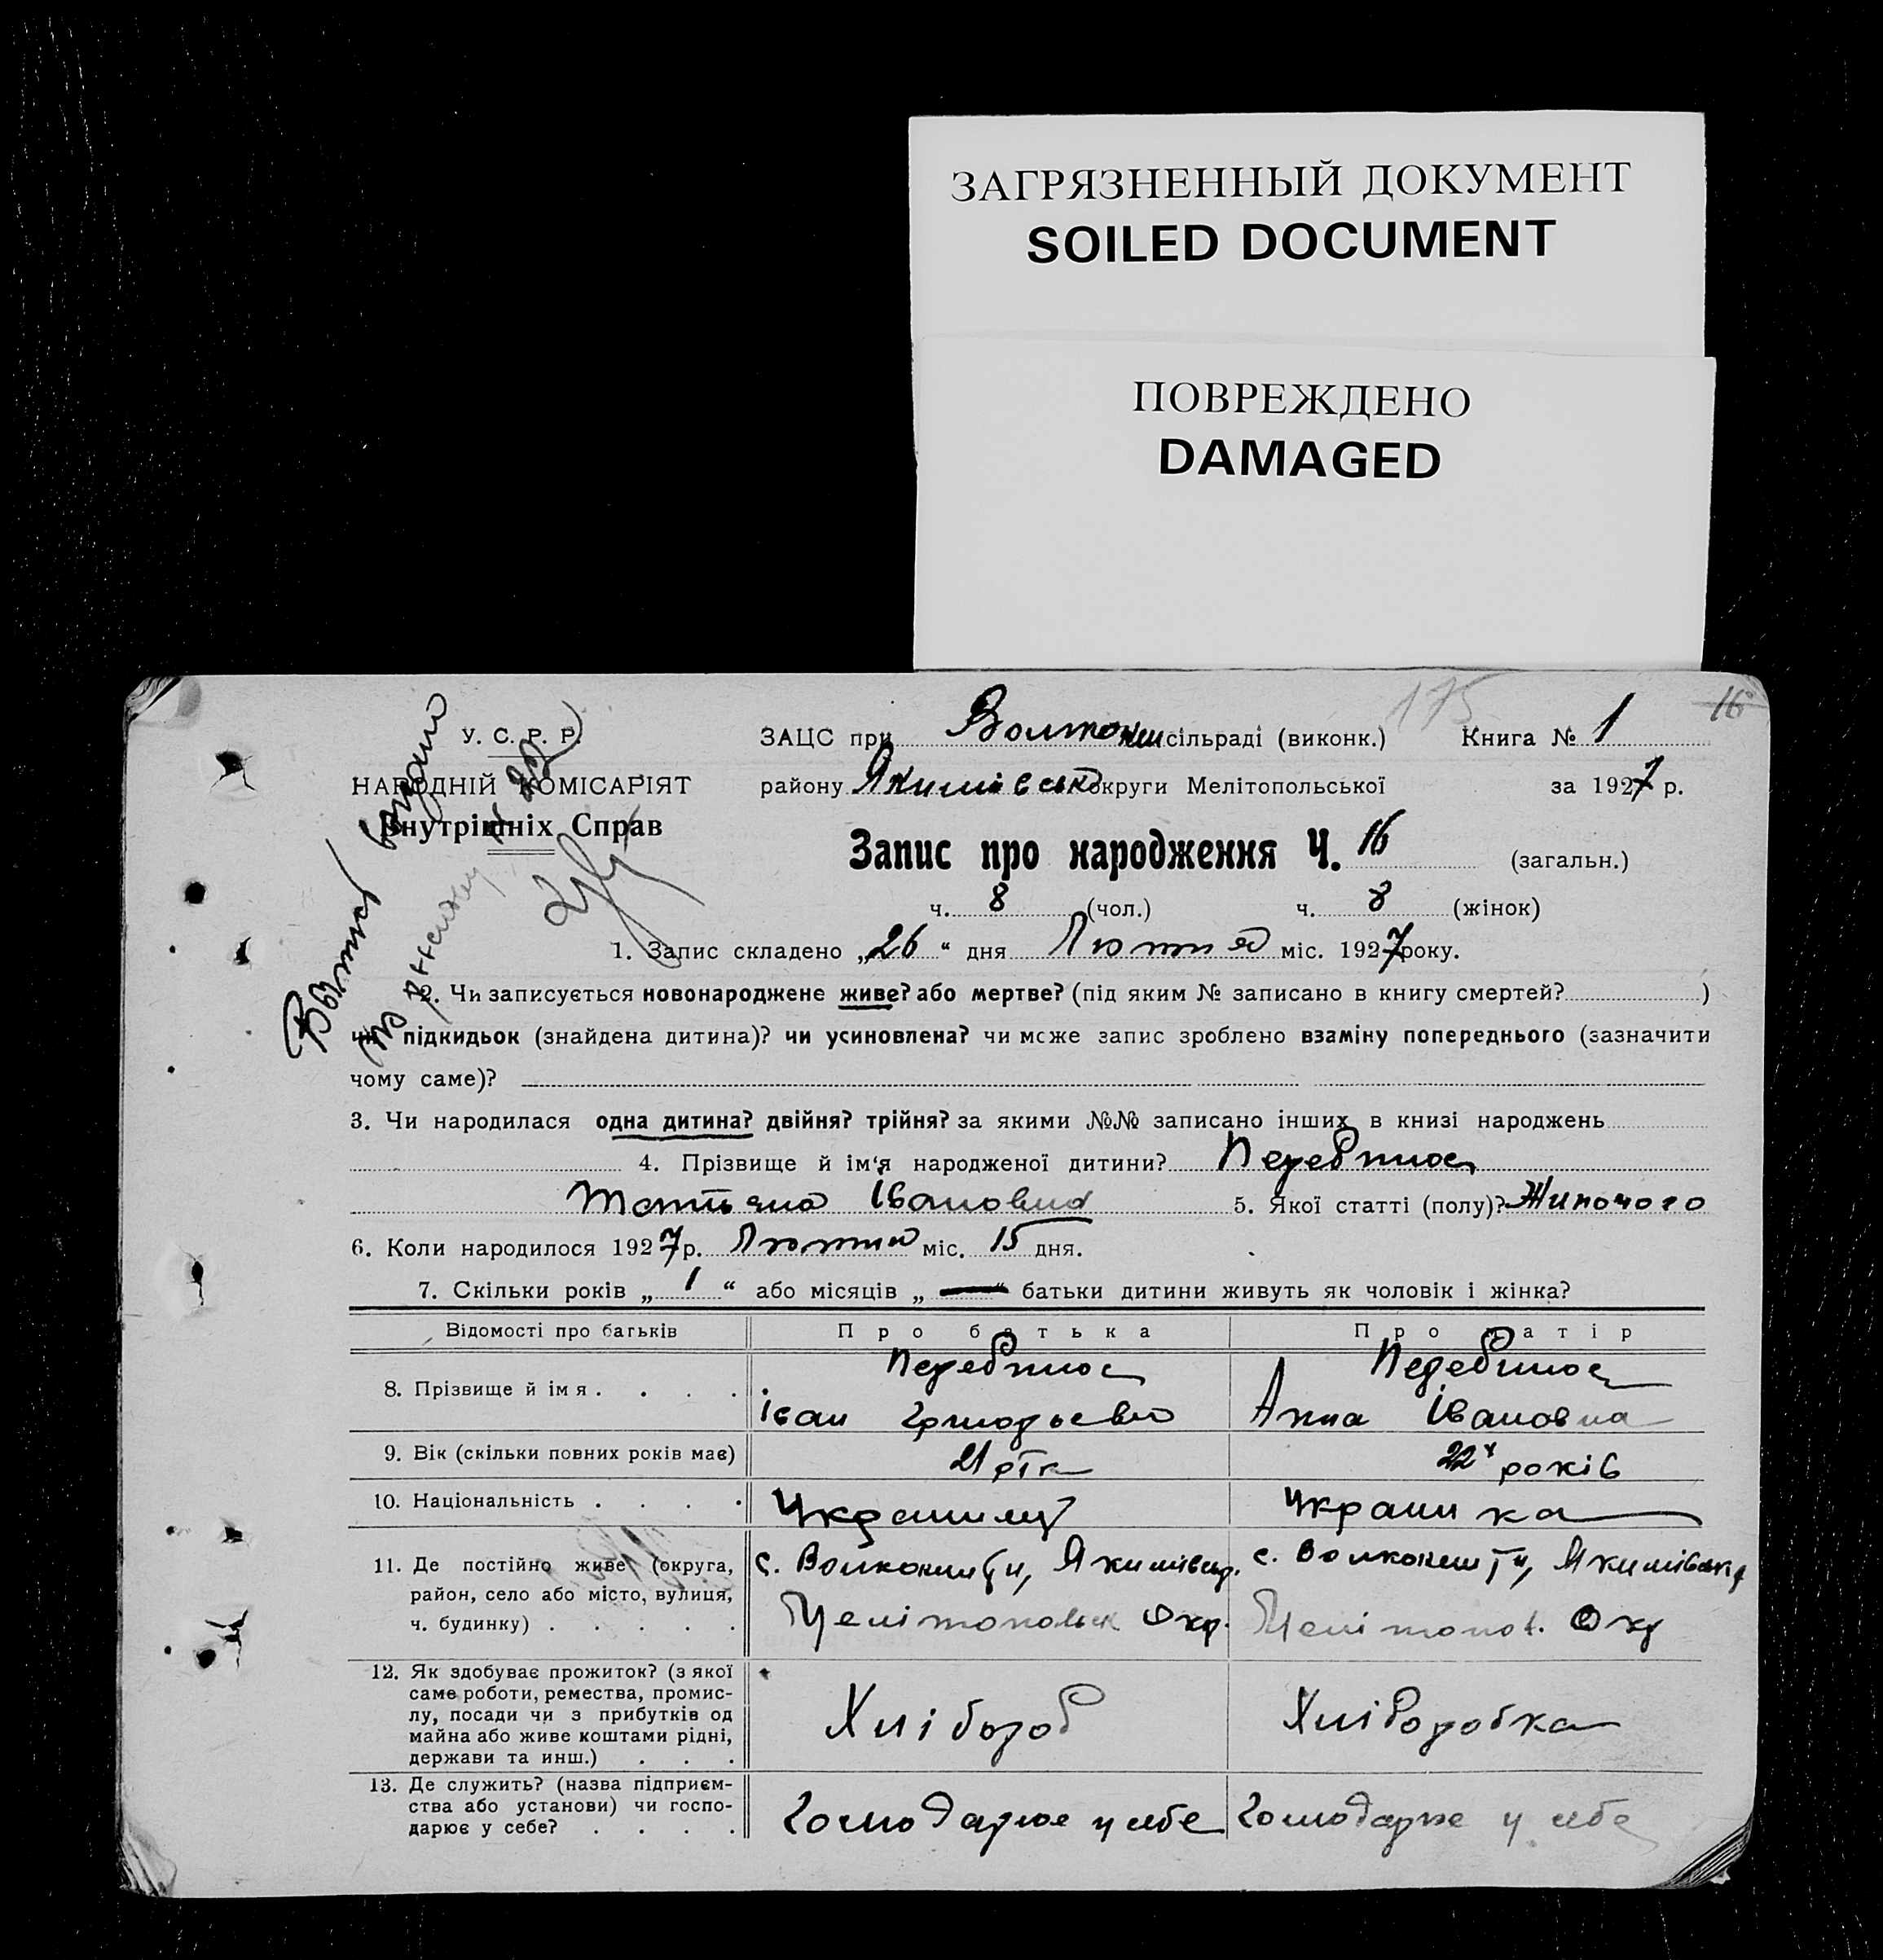 ЗАГРЯЗНЕННЫЙ ДОКУМЕНТ
SOILED DOCUMENT
ПОВРЕЖДЕНО
DAMAGED
175 16
У. С. Р. Р.
НАРОДНІЙ КОМІСАРІЯТ
Внутрішніх Справ
ЗАЦС при сільраді (виконк.) Книга № 1
району Якимівськ округи Мелітопольської за 1927 р.
Запис про народження Ч. 16 (загальн.)
ч. 8 (чол.) ч. 8 (жінок)
1. Запис складено „26“ дня Лютня міс. 1927 року.
2. Чи записується новонароджене живе? або мертве? (під яким № записано в книгу смертей? )
чи підкидьок (знайдена дитина)? чи усиновлена? чи може запис зроблено взаміну попереднього (зазначити
чому саме)?
3. Чи народилася одна дитина? двійня? трійня? за якими №№ записано інших в книзі народжень
4. Прізвище й ім‘я народженої дитини?
Татьяна Івановна 5. Якої статті (полу)? Жиночого
6. Коли народилося 1927 р. Лютня міс. 15 дня.
7. Скільки років „1“ або місяців „—“ батьки дитини живуть як чоловік і жінка?
Відомості про батьків Про батька Про матір
8. Прізвище й імя . . . .
Іван Анна Івановна
9. Вік (скільки повних років має) 21 рік 22х років
10. Національність . . . . Українец Українка
11. Де постійно живе (округа,
район, село або місто, вулиця,
ч. будинку) . . . . .
Мелітопольск Окр. Мелітопол. Окр
12. Як здобуває прожиток? (з якої
саме роботи, ремества, промис-
лу, посади чи з прибутків од
майна або живе коштами рідні,
держави та инш.) . . .
Хлібороб Хліборобка
13. Де служить? (назва підприєм-
ства або установи) чи госпо-
дарює у себе? . . . .
Господарює у себе Господарює у себе